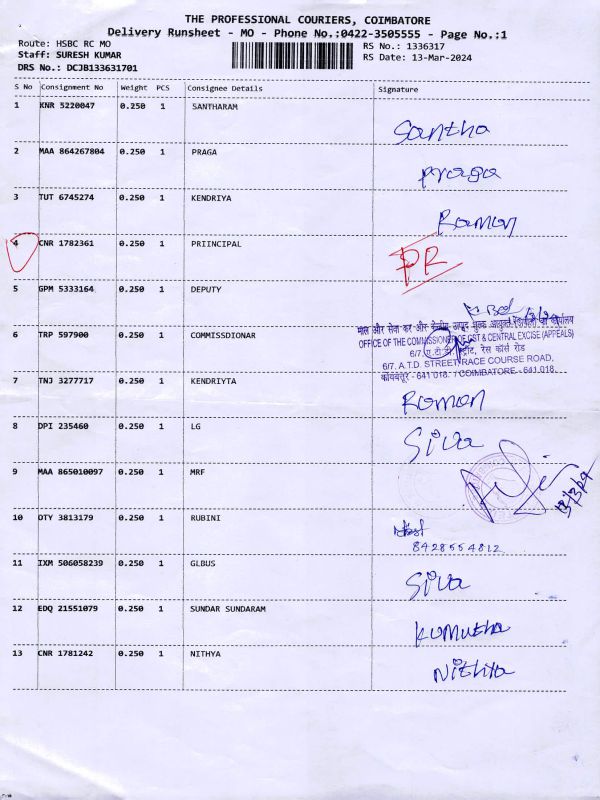 THE PROFESSIONAL COURIERS, COIMBATORE
Delivery Runsheet - MO - Phone No.:0422-3505555 - Page No.:1
Route: HSBC RC MO RS No.: 1336317
Staff: SURESH KUMAR RS Date: 13-Mar-2024
DRS No.: DCJB133631701
S No Consignment No Weight PCS Consignee Details Signature
1 KNR 5220047 0.250 1 SANTHARAM
Santha
2 MAA 864267804 0.250 1 PRAGA
Praga
3 TUT 6745274 0.250 1 KENDRIYA
Raman
4 CNR 1782361 0.250 1 PRIINCIPAL
PR
5 GPM 5333164 0.250 1 DEPUTY
6 TRP 597900 0.250 1 COMMISSDIONAR
माल और सेवा कर और केन्द्रीय उत्पाद शुल्क
OFFICE OF THE COMMISSIONER OF GST & CENTRAL EXCISE (APPEALS)
6/7, ए.टी.डी. स्ट्रीट, रेस कोर्स रोड
6/7. A.T.D. STREET, RACE COURSE ROAD,
कोयंबटूर - 641 018. / COIMBATORE - 641 018.
7 TNJ 3277717 0.250 1 KENDRIYTA
Raman
8 DPI 235460 0.250 1 LG
Siva
9 MAA 865010097 0.250 1 MRF
13/3/24
10 OTY 3813179 0.250 1 RUBINI
8428554812
11 IXM 506058239 0.250 1 GLBUS
Siva
12 EDQ 21551079 0.250 1 SUNDAR SUNDARAM
Kumutha
13 CNR 1781242 0.250 1 NITHYA
Nithya